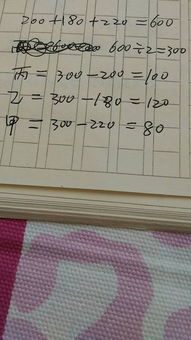 200+180+220=600
600÷2=300
丙=300-200=100
乙=300-180=120
甲=300-220=80